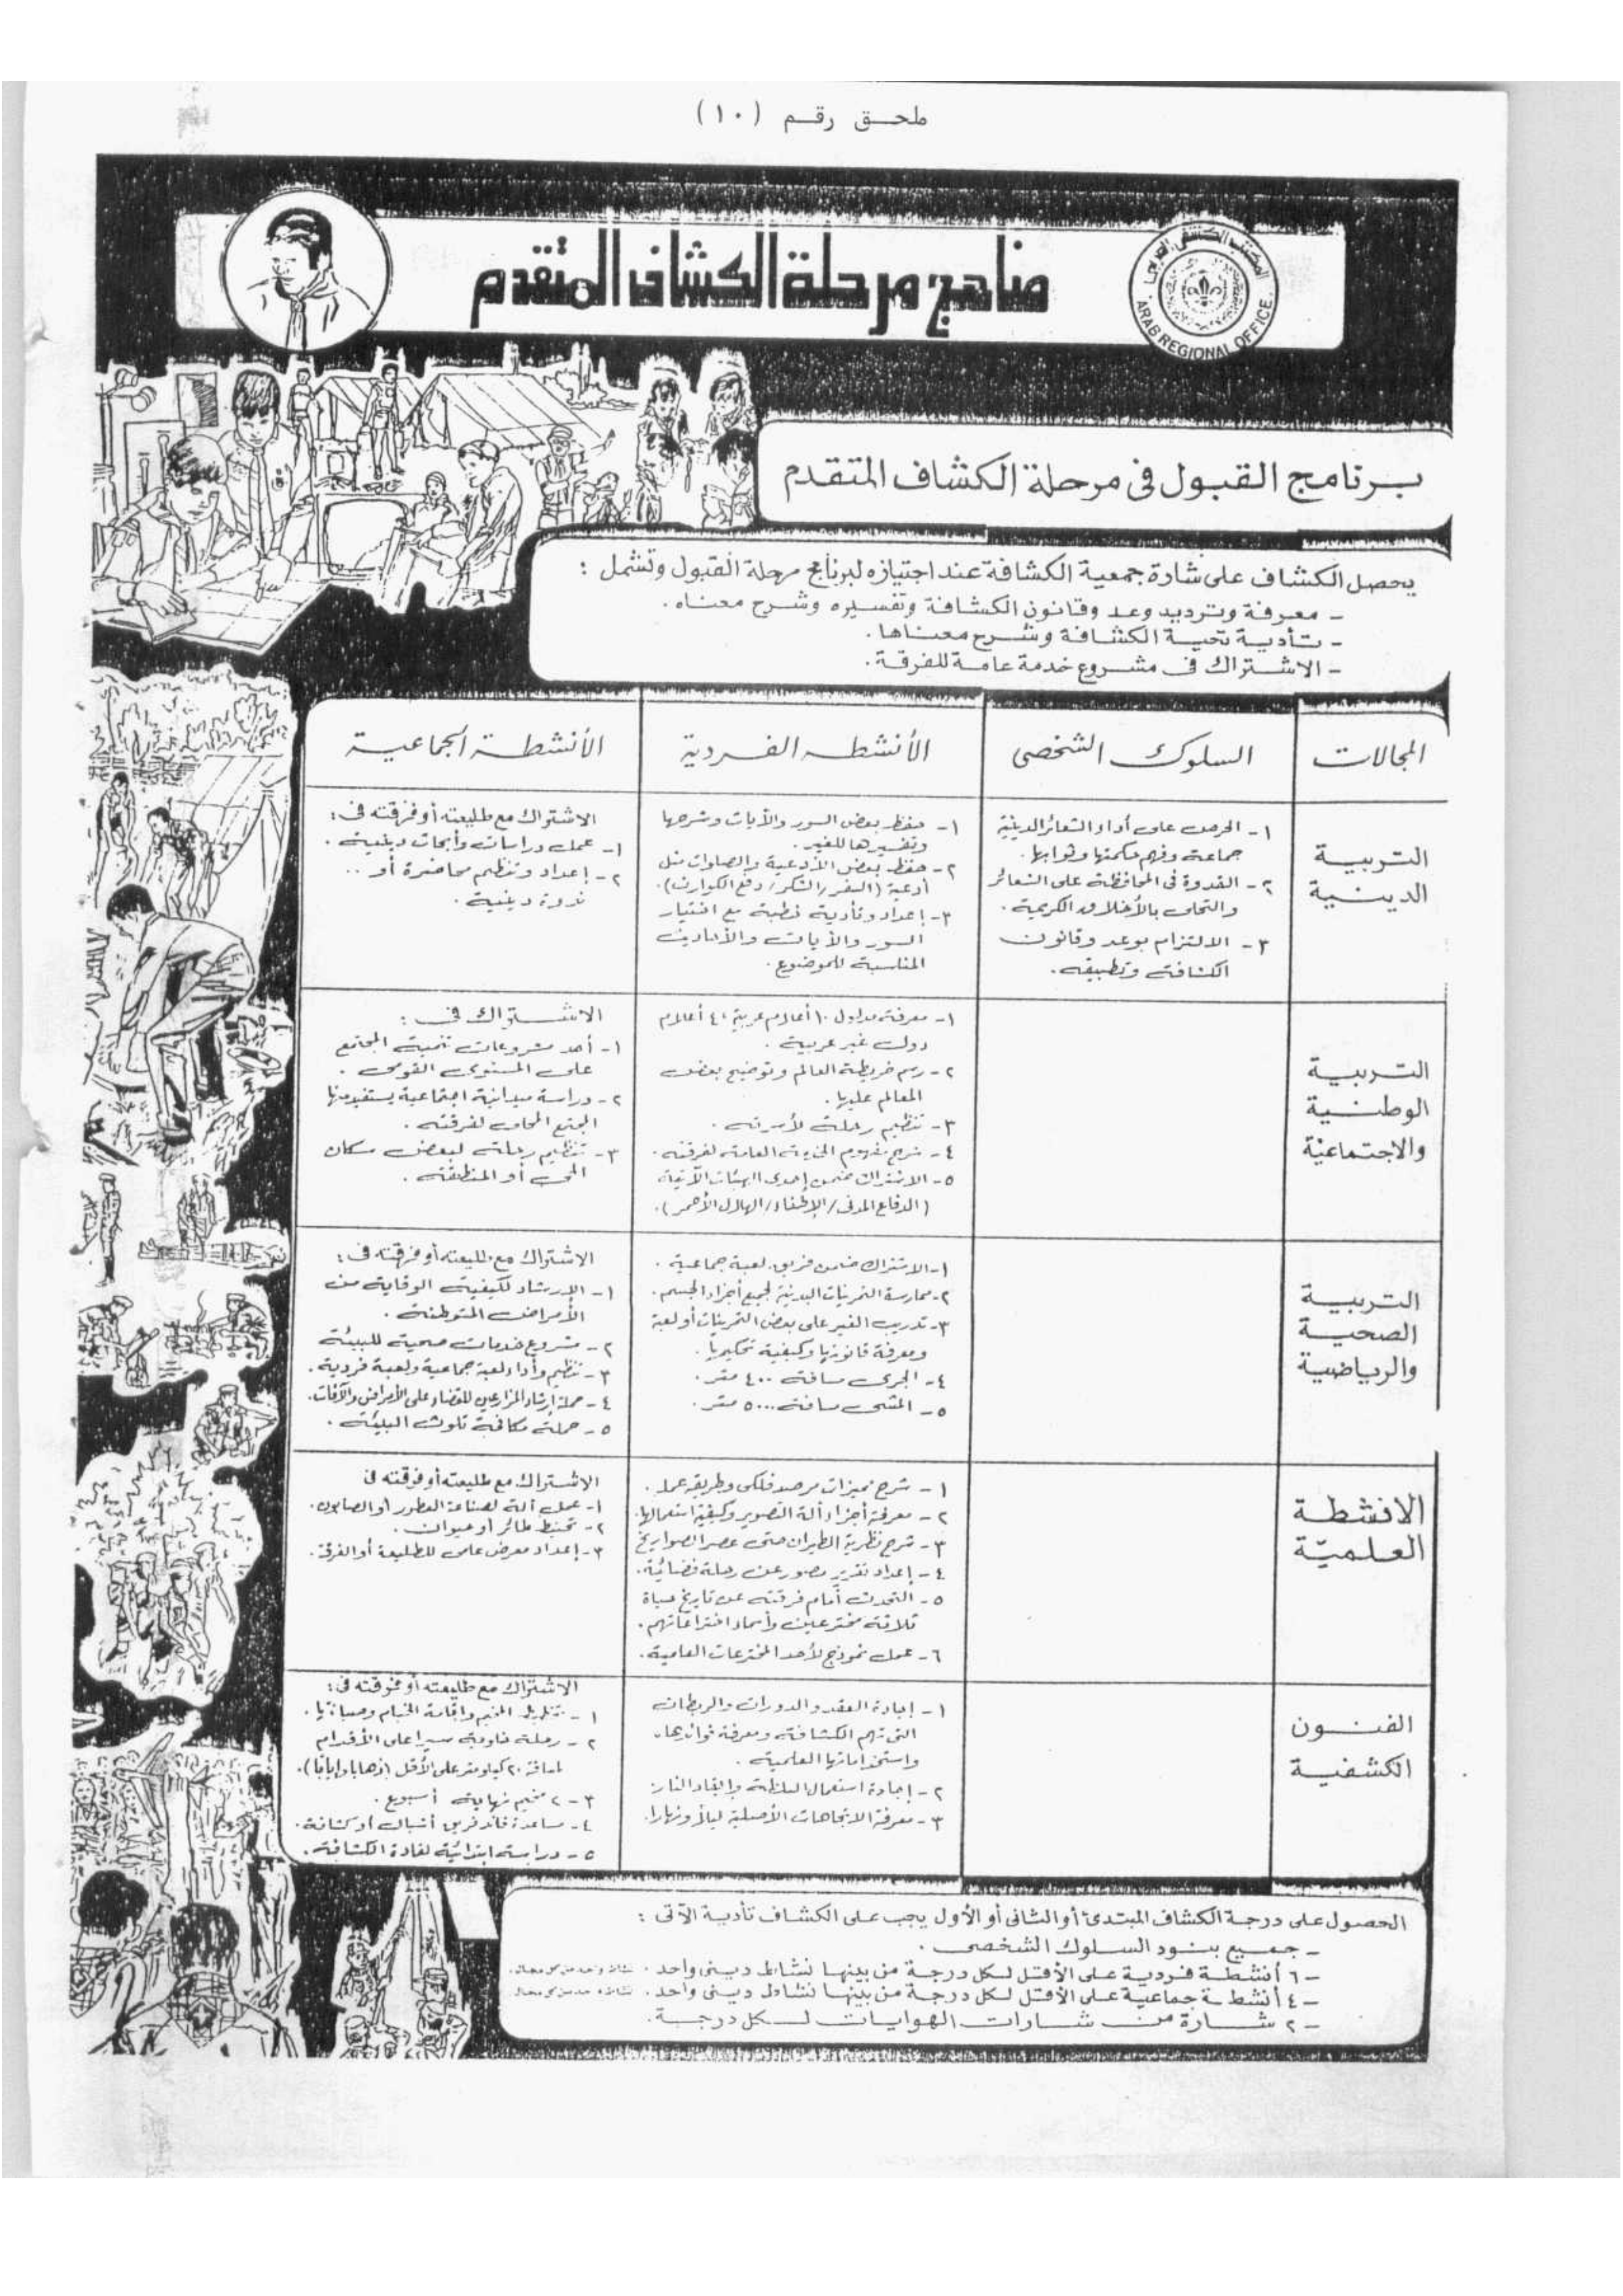 ملحق رقم (١٠)
مناهج مرحلة الكشاف المتقدم
المكتب الكشفي العربي
ARAB REGIONAL OFFICE
برنامج القبول في مرحلة الكشاف المتقدم
يحصل الكشاف على شارة جمعية الكشافة عند اجتيازه لبرنامج مرحلة القبول وتشمل :
- معرفة وترديد وعد وقانون الكشافة وتفسيره وشرح معناه .
- تأدية تحية الكشافة وشرح معناها .
- الاشتراك في مشروع خدمة عامة للفرقة .
المجالات
السلوك الشخصي
الأنشطه الفردية
الأنشطة الجماعية
التربية
الدينية
١- الحرص على أداء الشعائر الدينية
جماعة وفهم حكمتها وثوابها .
٢- القدوة في المحافظة على الشعائر
والتحلى بالأخلاق الكريمة .
٣- الالتزام بوعد وقانون
الكشافة وتطبيقه .
١- حفظ بعض السور والآيات وشرحها
وتفسيرها للغير .
٢- حفظ بعض الأدعية والصلوات مثل
أدعية (السفر/الشكر/دفع الكوارث).
٣- إعداد وتأدية خطبة مع اختيار
السور والآيات والأحاديث
المناسبة للموضوع .
الاشتراك مع طليعته أو فرقته في :
١- عمل دراسات وأبحاث دينية .
٢- إعداد وتنظيم محاضرة أو ..
ندوة دينية .
التربية
الوطنية
والاجتماعية
١- معرفة مدلول ١٠ أعلام عربية ، ٤ أعلام
دول غير عربية .
٢- رسم خريطة العالم وتوضيح بعض
المعالم عليها .
٣- تنظيم رحلة لأسرته .
٤- شرح مفهوم الخدمة العامة لفرقته .
٥- الاشتراك ضمن إحدى الهيئات الآتية
(الدفاع المدني/الإطفاء/الهلال الأحمر).
الاشتراك في :
١- أحد مشروعات تنمية المجتمع
على المستوى القومى .
٢- دراسة ميدانية اجتماعية يستفيد منها
المجتمع المحلى لفرقته .
٣- تنظيم رحلة لبعض سكان
الحى أو المنطقة .
التربية
الصحية
والرياضية
١- الاشتراك ضمن فريق لعبة جماعية .
٢- ممارسة التمرينات البدنية لجميع أجزاء الجسم .
٣- تدريب الغير على بعض التمرينات أو لعبة
ومعرفة قانونها وكيفية تحكيمها .
٤- الجرى مسافة ٤٠٠ متر .
٥- المشى مسافة ٥٠٠٠ متر .
الاشتراك مع طليعته أو فرقته في :
١- الإرشاد لكيفية الوقاية من
الأمراض المتوطنة .
٢- مشروع خدمات صحية للبيئة
٣- تنظيم وأداء لعبة جماعية ولعبة فردية .
٤- حملة إرشاد المزارعين للقضاء على الأمراض والآفات .
٥- حملة مكافحة تلوث البيئة .
الانشطة
العلمية
١- شرح مميزات مرصد فلكى وطريقة عمله .
٢- معرفة أجزاء ألة التصوير وكيفية استعمالها .
٣- شرح نظرية الطيران حتى عصر الصواريخ
٤- إعداد تقرير مصور عن رحلة فضائية .
٥- التحدث أمام فرقته عن تاريخ حياة
ثلاثة مخترعين وأسماء اختراعاتهم .
٦- عمل نموذج لأحد المخترعات العلمية .
الاشتراك مع طليعته أو فرقته في
١- عمل ألة لصناعة العطور أو الصابون .
٢- تحنيط طائر أو حيوان .
٣- إعداد معرض علمى للطليعة أو الفرقة .
الفنون
الكشفية
١- إجادة العقد والدورات والربطات
التى تهم الكشافة ومعرفة فوائدها
واستخداماتها العلمية .
٢- إجادة استعمال البلطة وإيقاد النار .
٣- معرفة الاتجاهات الأصلية ليلا ونهارا .
الاشتراك مع طليعته أو فرقته في :
١- تخطيط المخيم وإقامة الخيام وصيانتها .
٢- رحلة خلوية سيرا على الأقدام
لمسافة ٢٠ كيلومتر على الأقل (ذهابا وإيابا).
٣- ٢ مخيم نهاية أسبوع .
٤- مساعدة قائد فريق أشبال أو كشافة .
٥- دراسة ابتدائية لقادة الكشافة .
الحصول على درجة الكشاف المبتدئ أو الثاني أو الأول يجب على الكشاف تأدية الآتى :
- جميع بنود السلوك الشخصى .
- ٦ أنشطة فردية على الأقل لكل درجة من بينها نشاط دينى واحد .
- ٤ أنشطة جماعية على الأقل لكل درجة من بينها نشاط دينى واحد .
- ٢ شارة من شارات الهوايات لكل درجة .